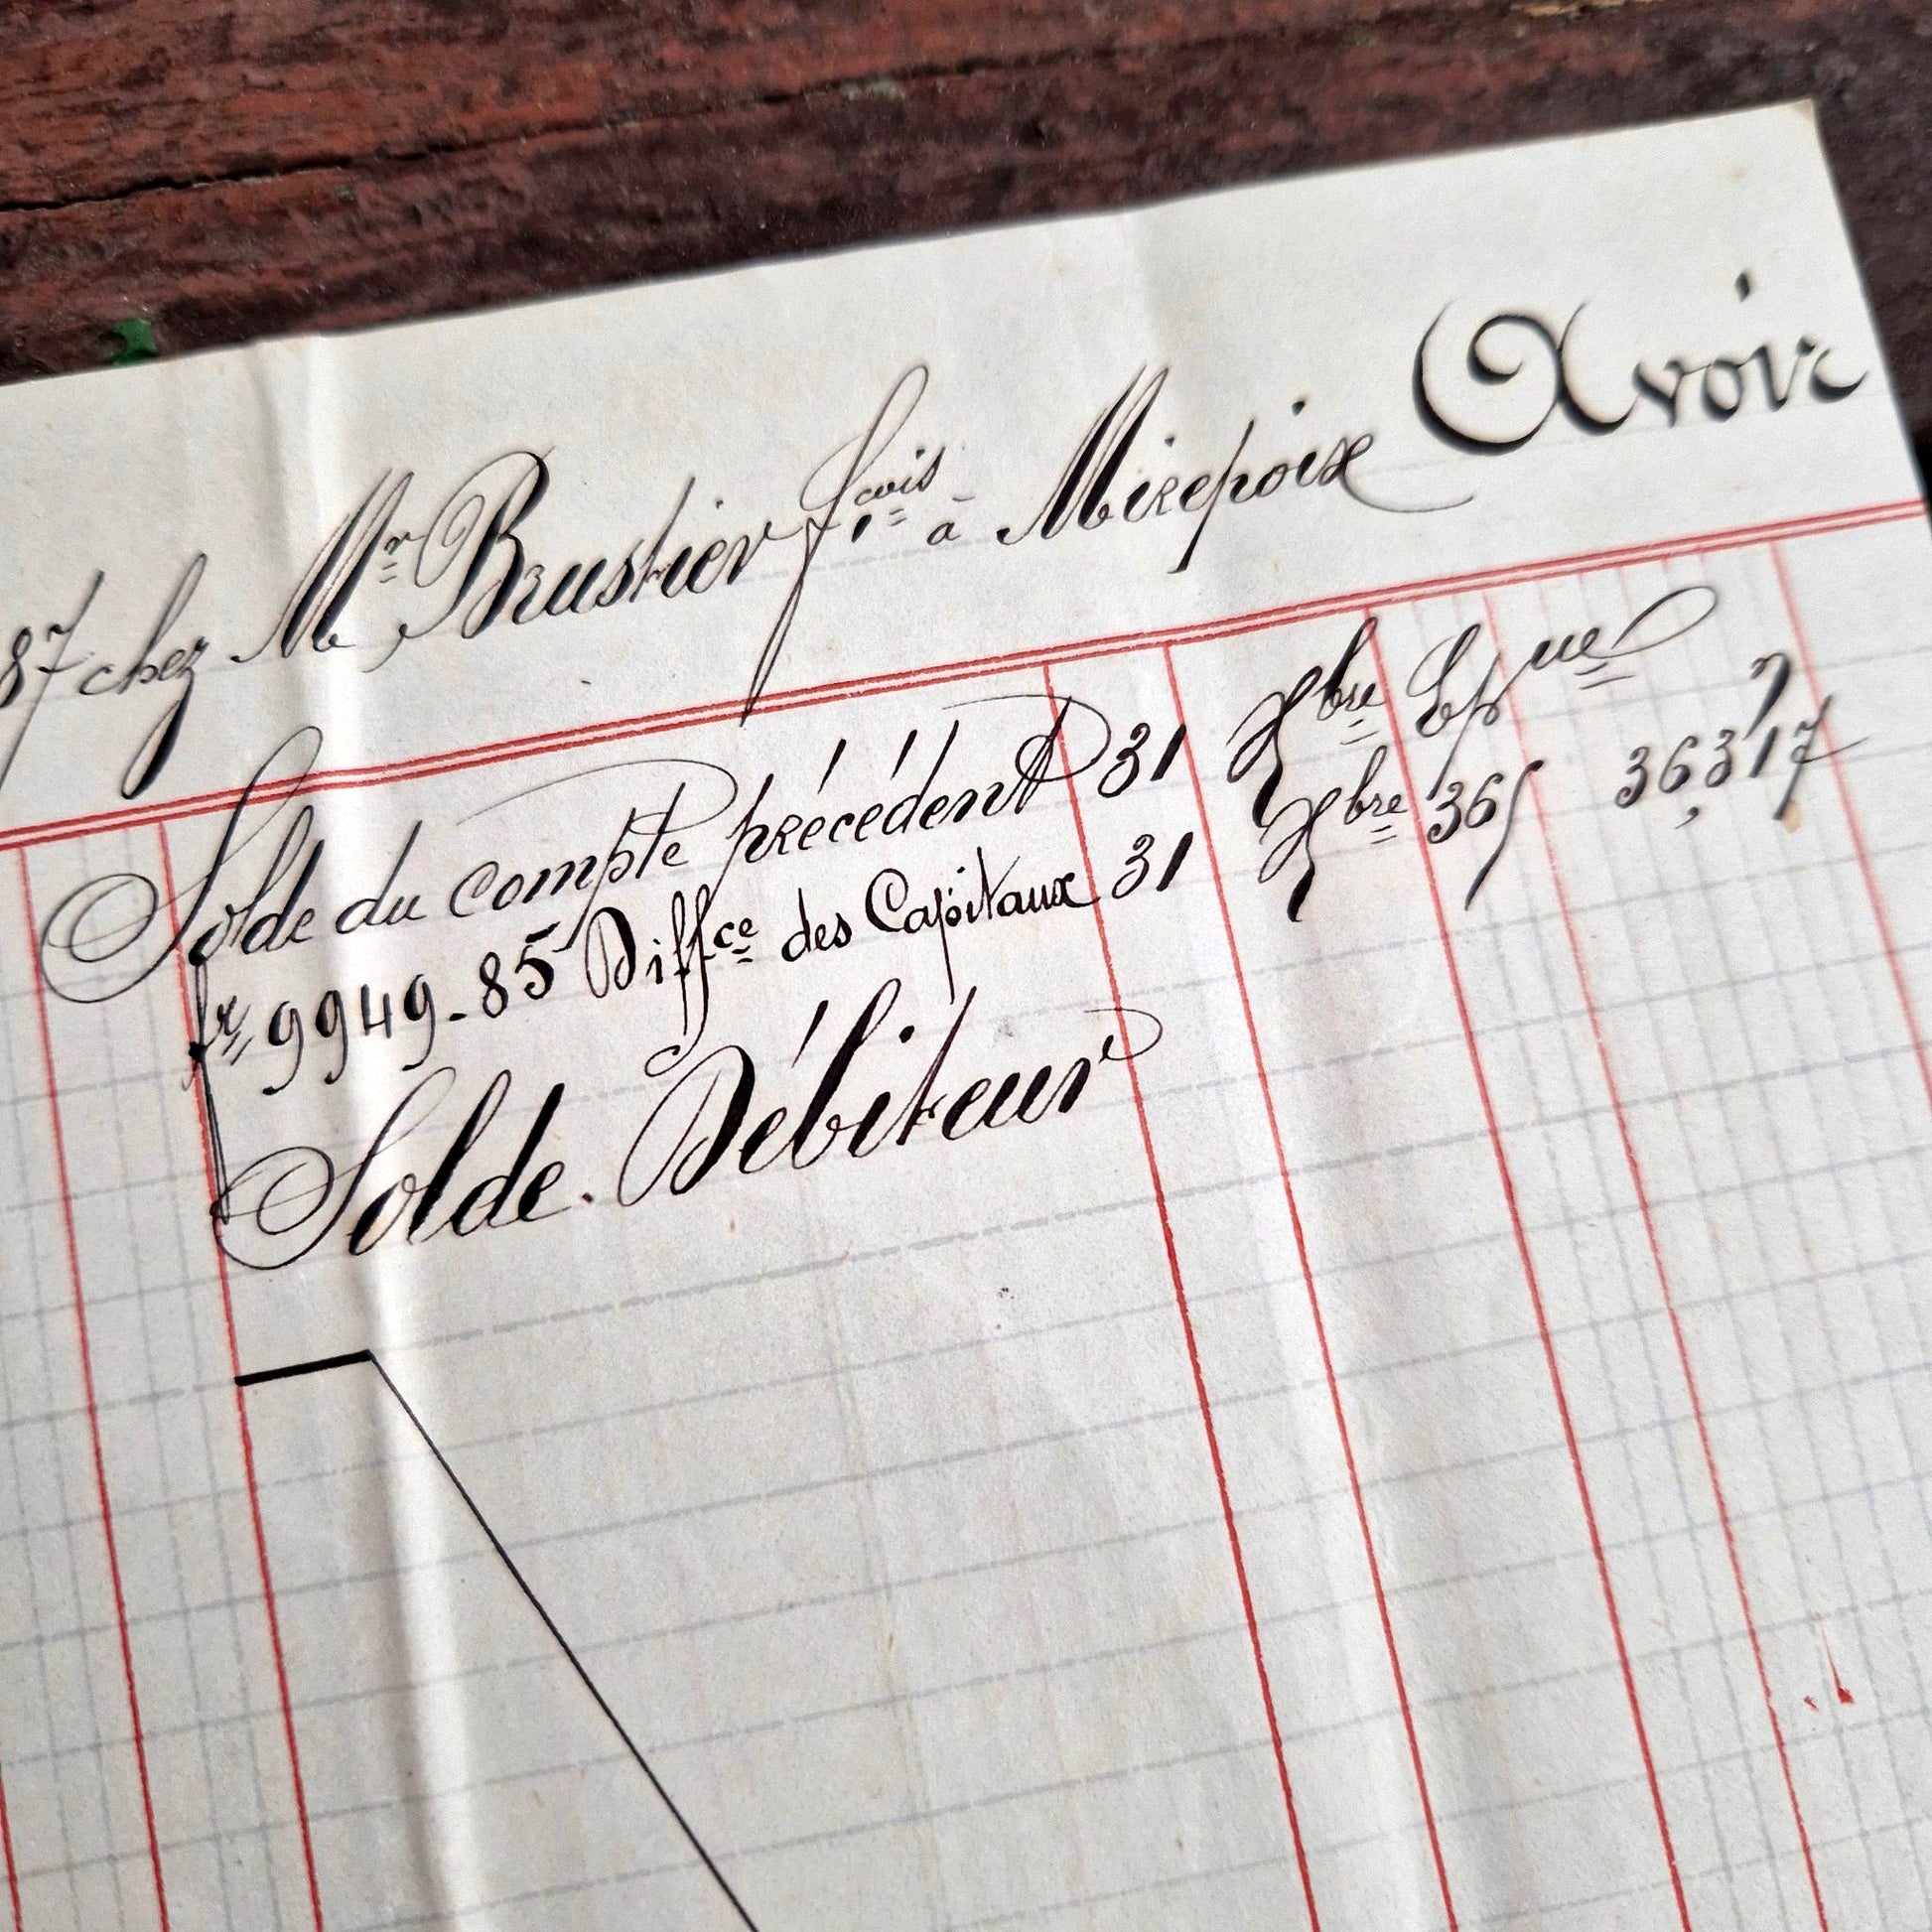 87 chez Mr Brustier fçois à Mirepoix Avoir
Solde du compte précédent 31 Xbre Epque "
fr 9949-85 Diffce des Capitaux 31 Xbre 365 36,317
Solde. Débiteur